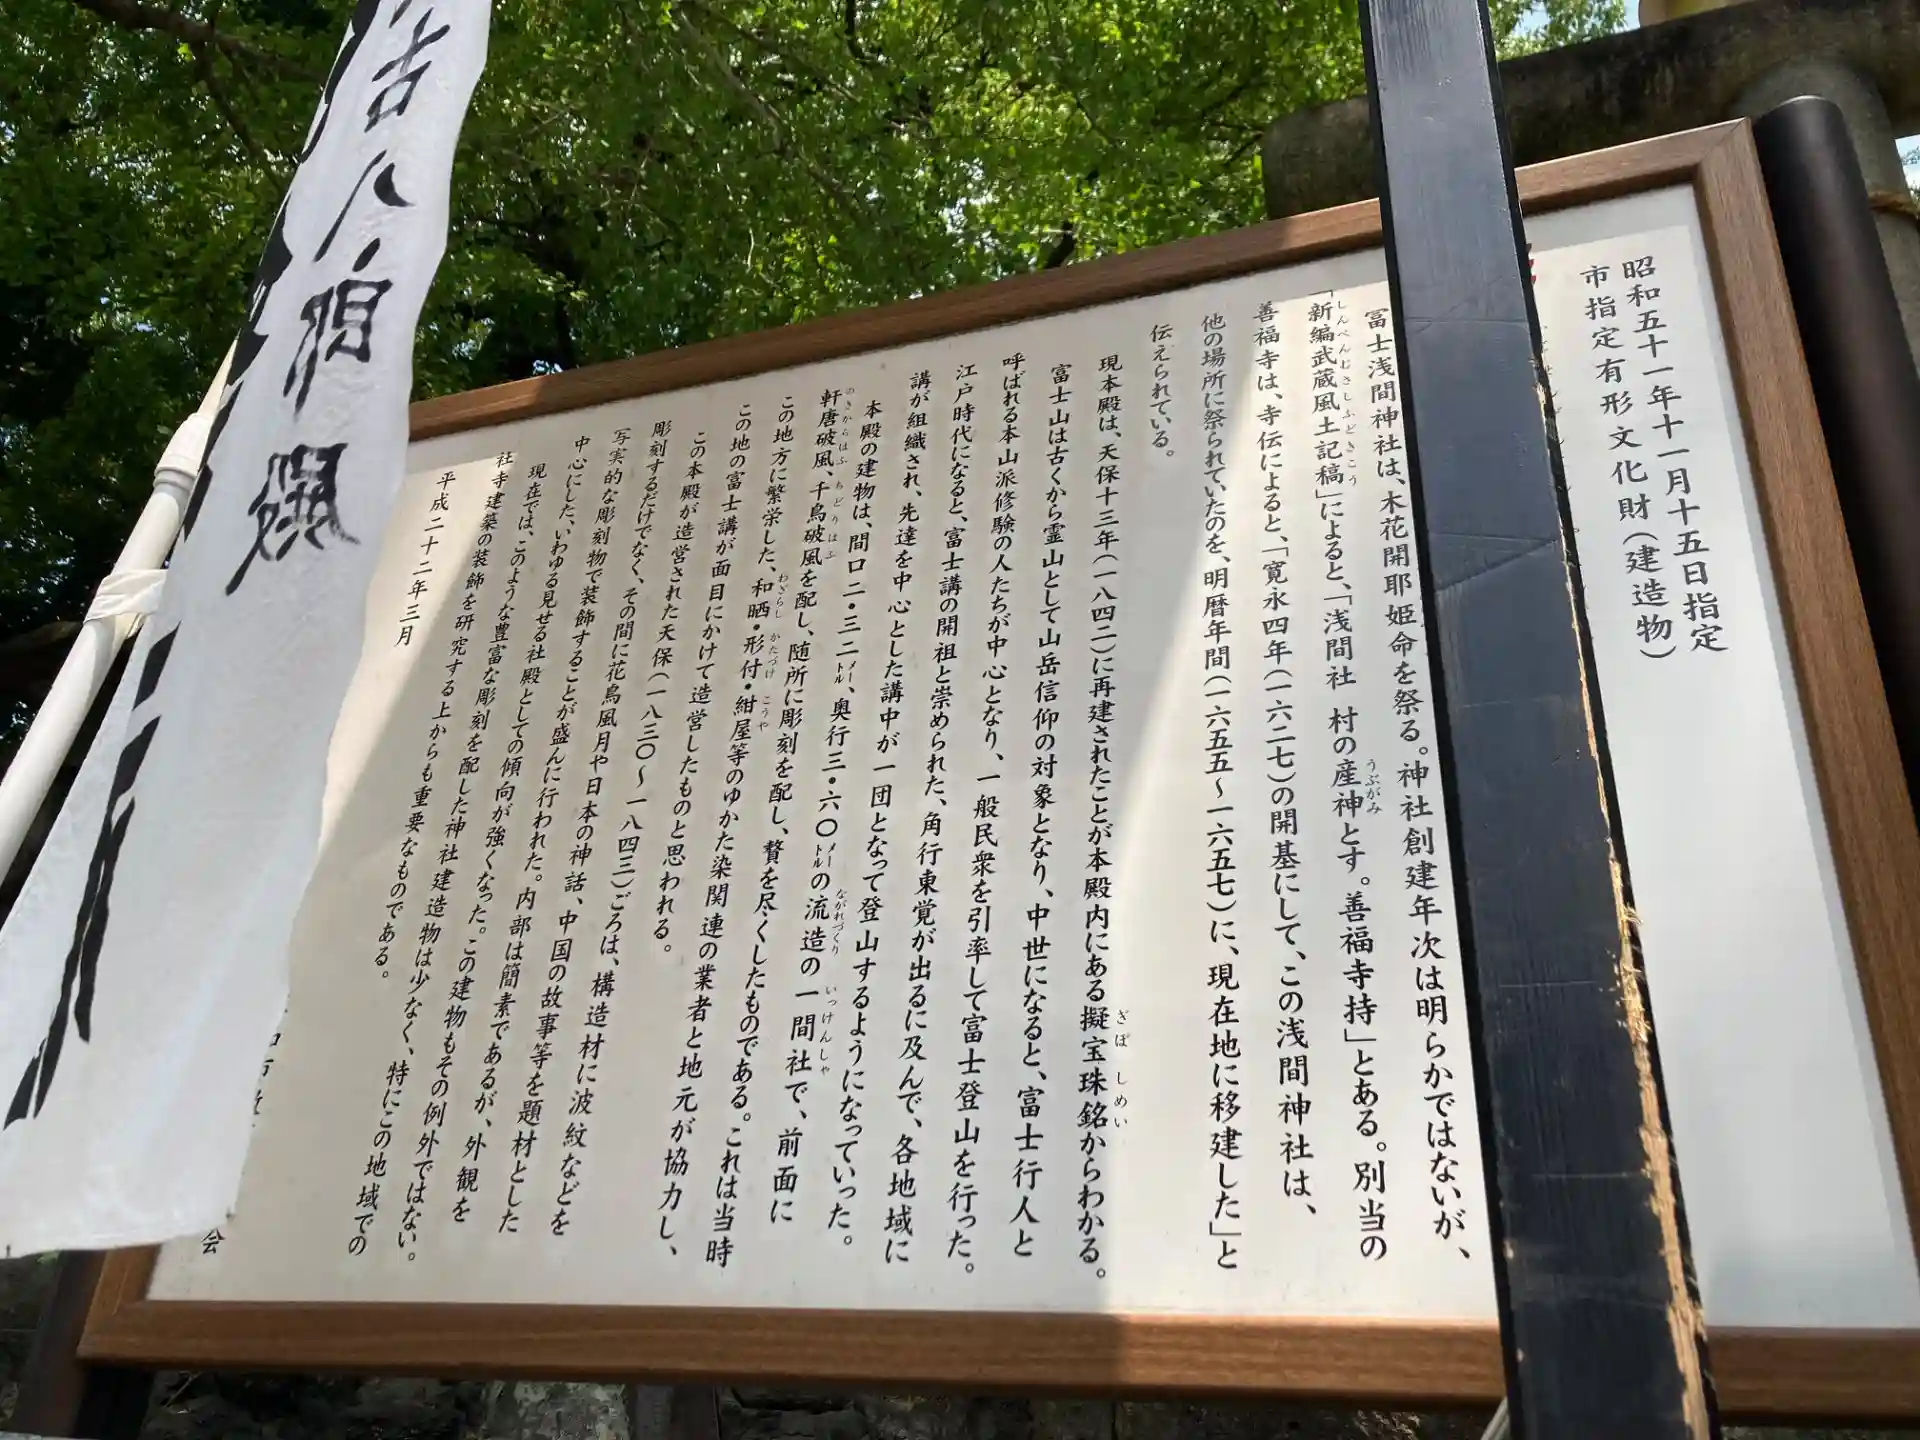 昭和五十一年十一月十五日指定
市指定有形文化財(建造物)
富士浅間神社は、木花開耶姫命を祭る。神社創建年次は明らかではないが、
「新編武蔵風土記稿」によると、「浅間社 村の産神とす。善福寺持」とある。別当の
しんぺんむさしふどきこう
うぶがみ
善福寺は、寺伝によると、「寛永四年(一六二七)の開基にして、この浅間神社は、
他の場所に祭られていたのを、明暦年間(一六五五〜一六五七)に、現在地に移建した」と
伝えられている。
現本殿は、天保十三年(一八四二)に再建されたことが本殿内にある擬宝珠銘からわかる。
ぎぼしめい
富士山は古くから霊山として山岳信仰の対象となり、中世になると、富士行人と
呼ばれる本山派修験の人たちが中心となり、一般民衆を引率して富士登山を行った。
江戸時代になると、富士講の開祖と崇められた、角行東覚が出るに及んで、各地域に
講が組織され、先達を中心とした講中が一団となって登山するようになっていった。
本殿の建物は、間口二・三二メートル、奥行三・六〇メートルの流造の一間社で、前面に
ながれづくり
いっけんしゃ
軒唐破風、千鳥破風を配し、随所に彫刻を配し、贅を尽くしたものである。これは当時
のきからはふ
ちどりはふ
この地方に繁栄した、和晒・形付・紺屋等のゆかた染関連の業者と地元が協力し、
わざらし
かたづけ
こうや
この地の富士講が面目にかけて造営したものと思われる。
この本殿が造営された天保(一八三〇〜一八四三)ごろは、構造材に波紋などを
彫刻するだけでなく、その間に花鳥風月や日本の神話、中国の故事等を題材とした
写実的な彫刻物で装飾することが盛んに行われた。内部は簡素であるが、外観を
中心にした、いわゆる見せる社殿としての傾向が強くなった。この建物もその例外ではない。
現在では、このような豊富な彫刻を配した神社建造物は少なく、特にこの地域での
社寺建築の装飾を研究する上からも重要なものである。
平成二十二年三月
会